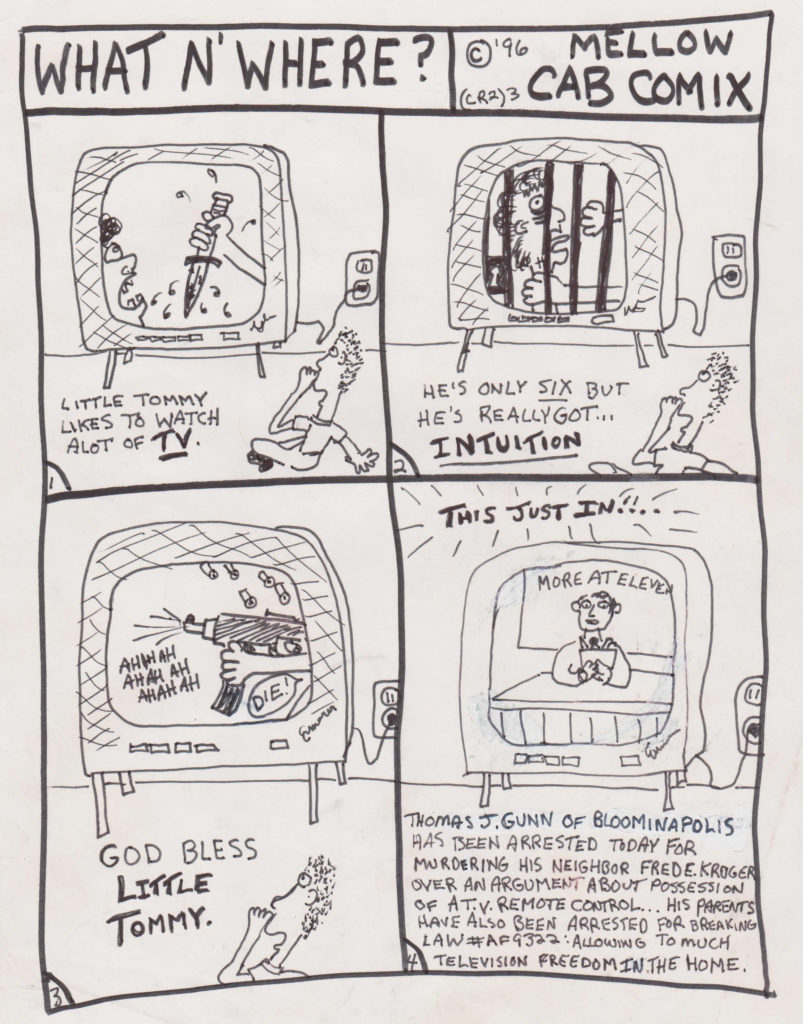 WHAT N' WHERE?
© '96 MELLOW
(CR2)3 CAB COMIX
LITTLE TOMMY
LIKES TO WATCH
ALOT OF TV.
1
HE'S ONLY SIX BUT
HE'S REALLY GOT...
INTUITION
2
AHAHAH
AHAH AH
AHAHAH
DIE!
GOD BLESS
LITTLE
TOMMY.
3
THIS JUST IN!!...
MORE AT ELEVEN
THOMAS J. GUNN OF BLOOMINAPOLIS
HAS BEEN ARRESTED TODAY FOR
MURDERING HIS NEIGHBOR FRED E. KROGER
OVER AN ARGUMENT ABOUT POSSESSION
OF A T.V. REMOTE CONTROL... HIS PARENTS
HAVE ALSO BEEN ARRESTED FOR BREAKING
LAW #AF9322: ALLOWING TO MUCH
TELEVISION FREEDOM IN THE HOME.
4